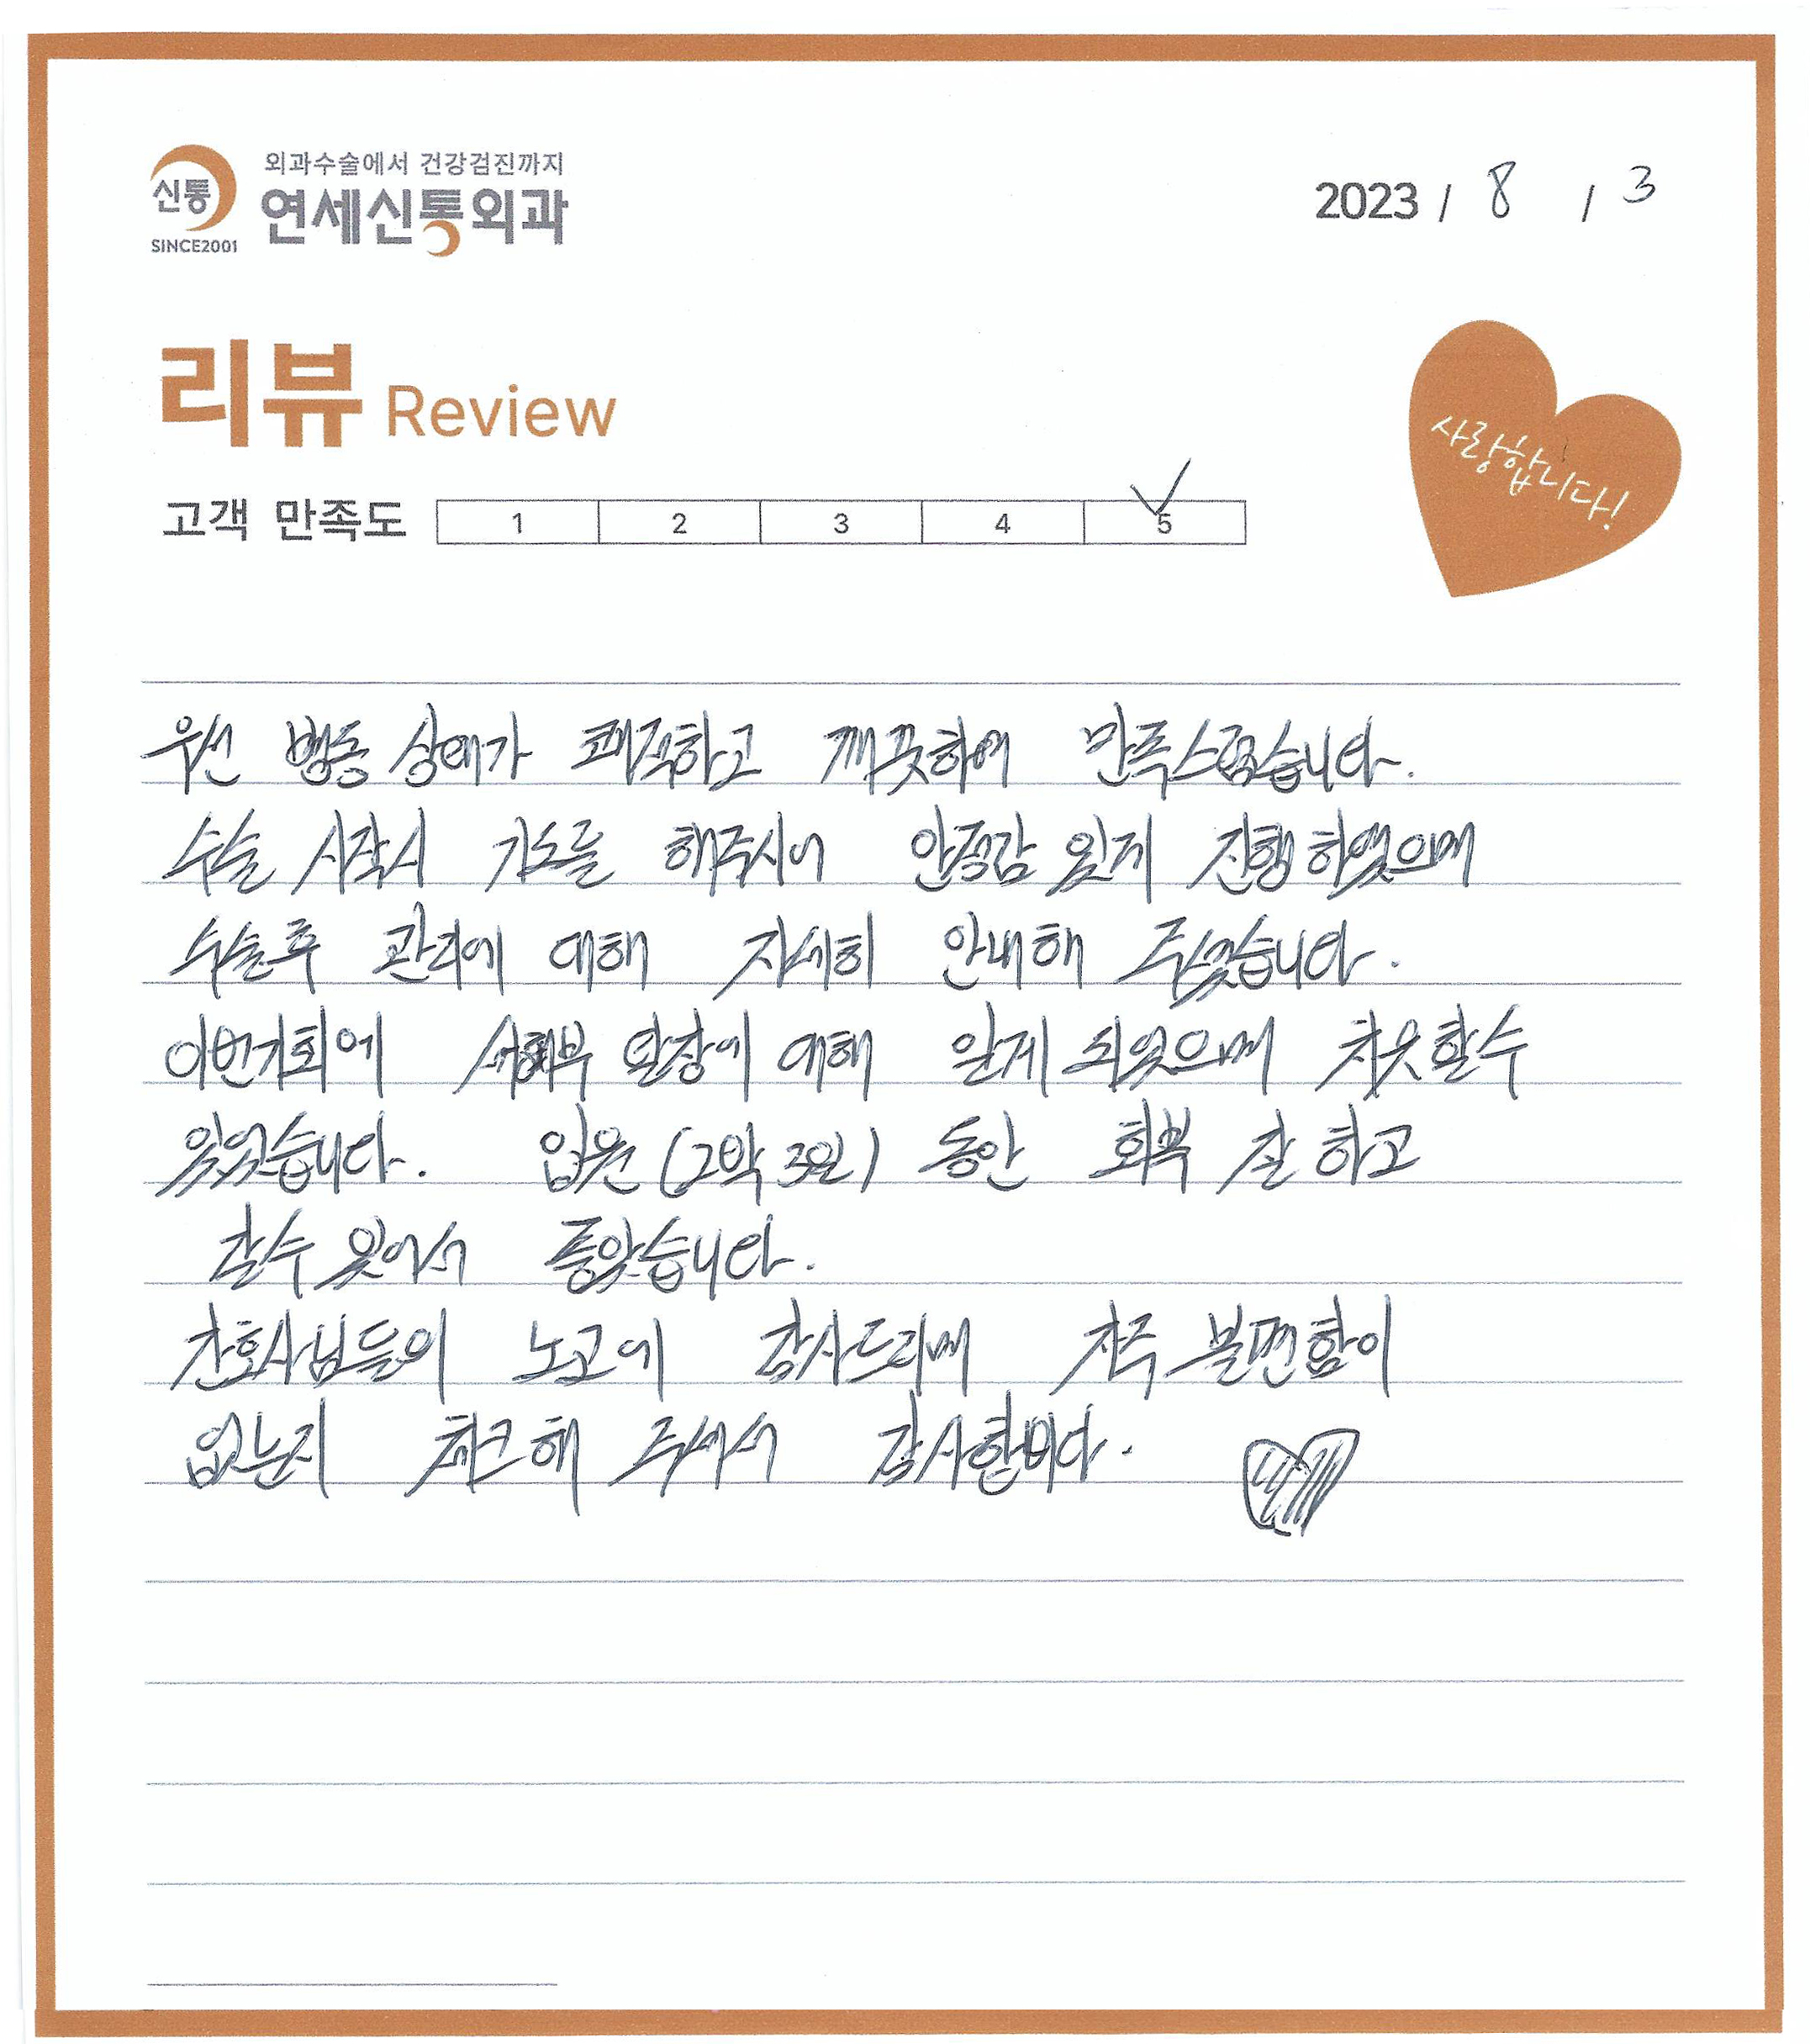 외과수술에서 건강검진까지
신통
연세신통외과
SINCE2001
2023 / 8 / 3
리뷰 Review
사랑합니다!
고객 만족도 1 2 3 4 5
우선 병동 상태가 쾌적하고 깨끗하여 만족스러웠습니다.
수술 시작시 기도를 해주시어 안정감 있게 진행하였으며
수술후 관리에 대해 자세히 안내해 주셨습니다.
이번기회에 서혜부 탈장에 대해 알게 되었으며 치료할수
있었습니다. 입원 (2박 3일) 동안 회복 잘 하고
갈수 있어서 좋았습니다.
간호사님들의 노고에 감사드리며 자주 불편함이
없는지 체크해 주셔서 감사합니다.